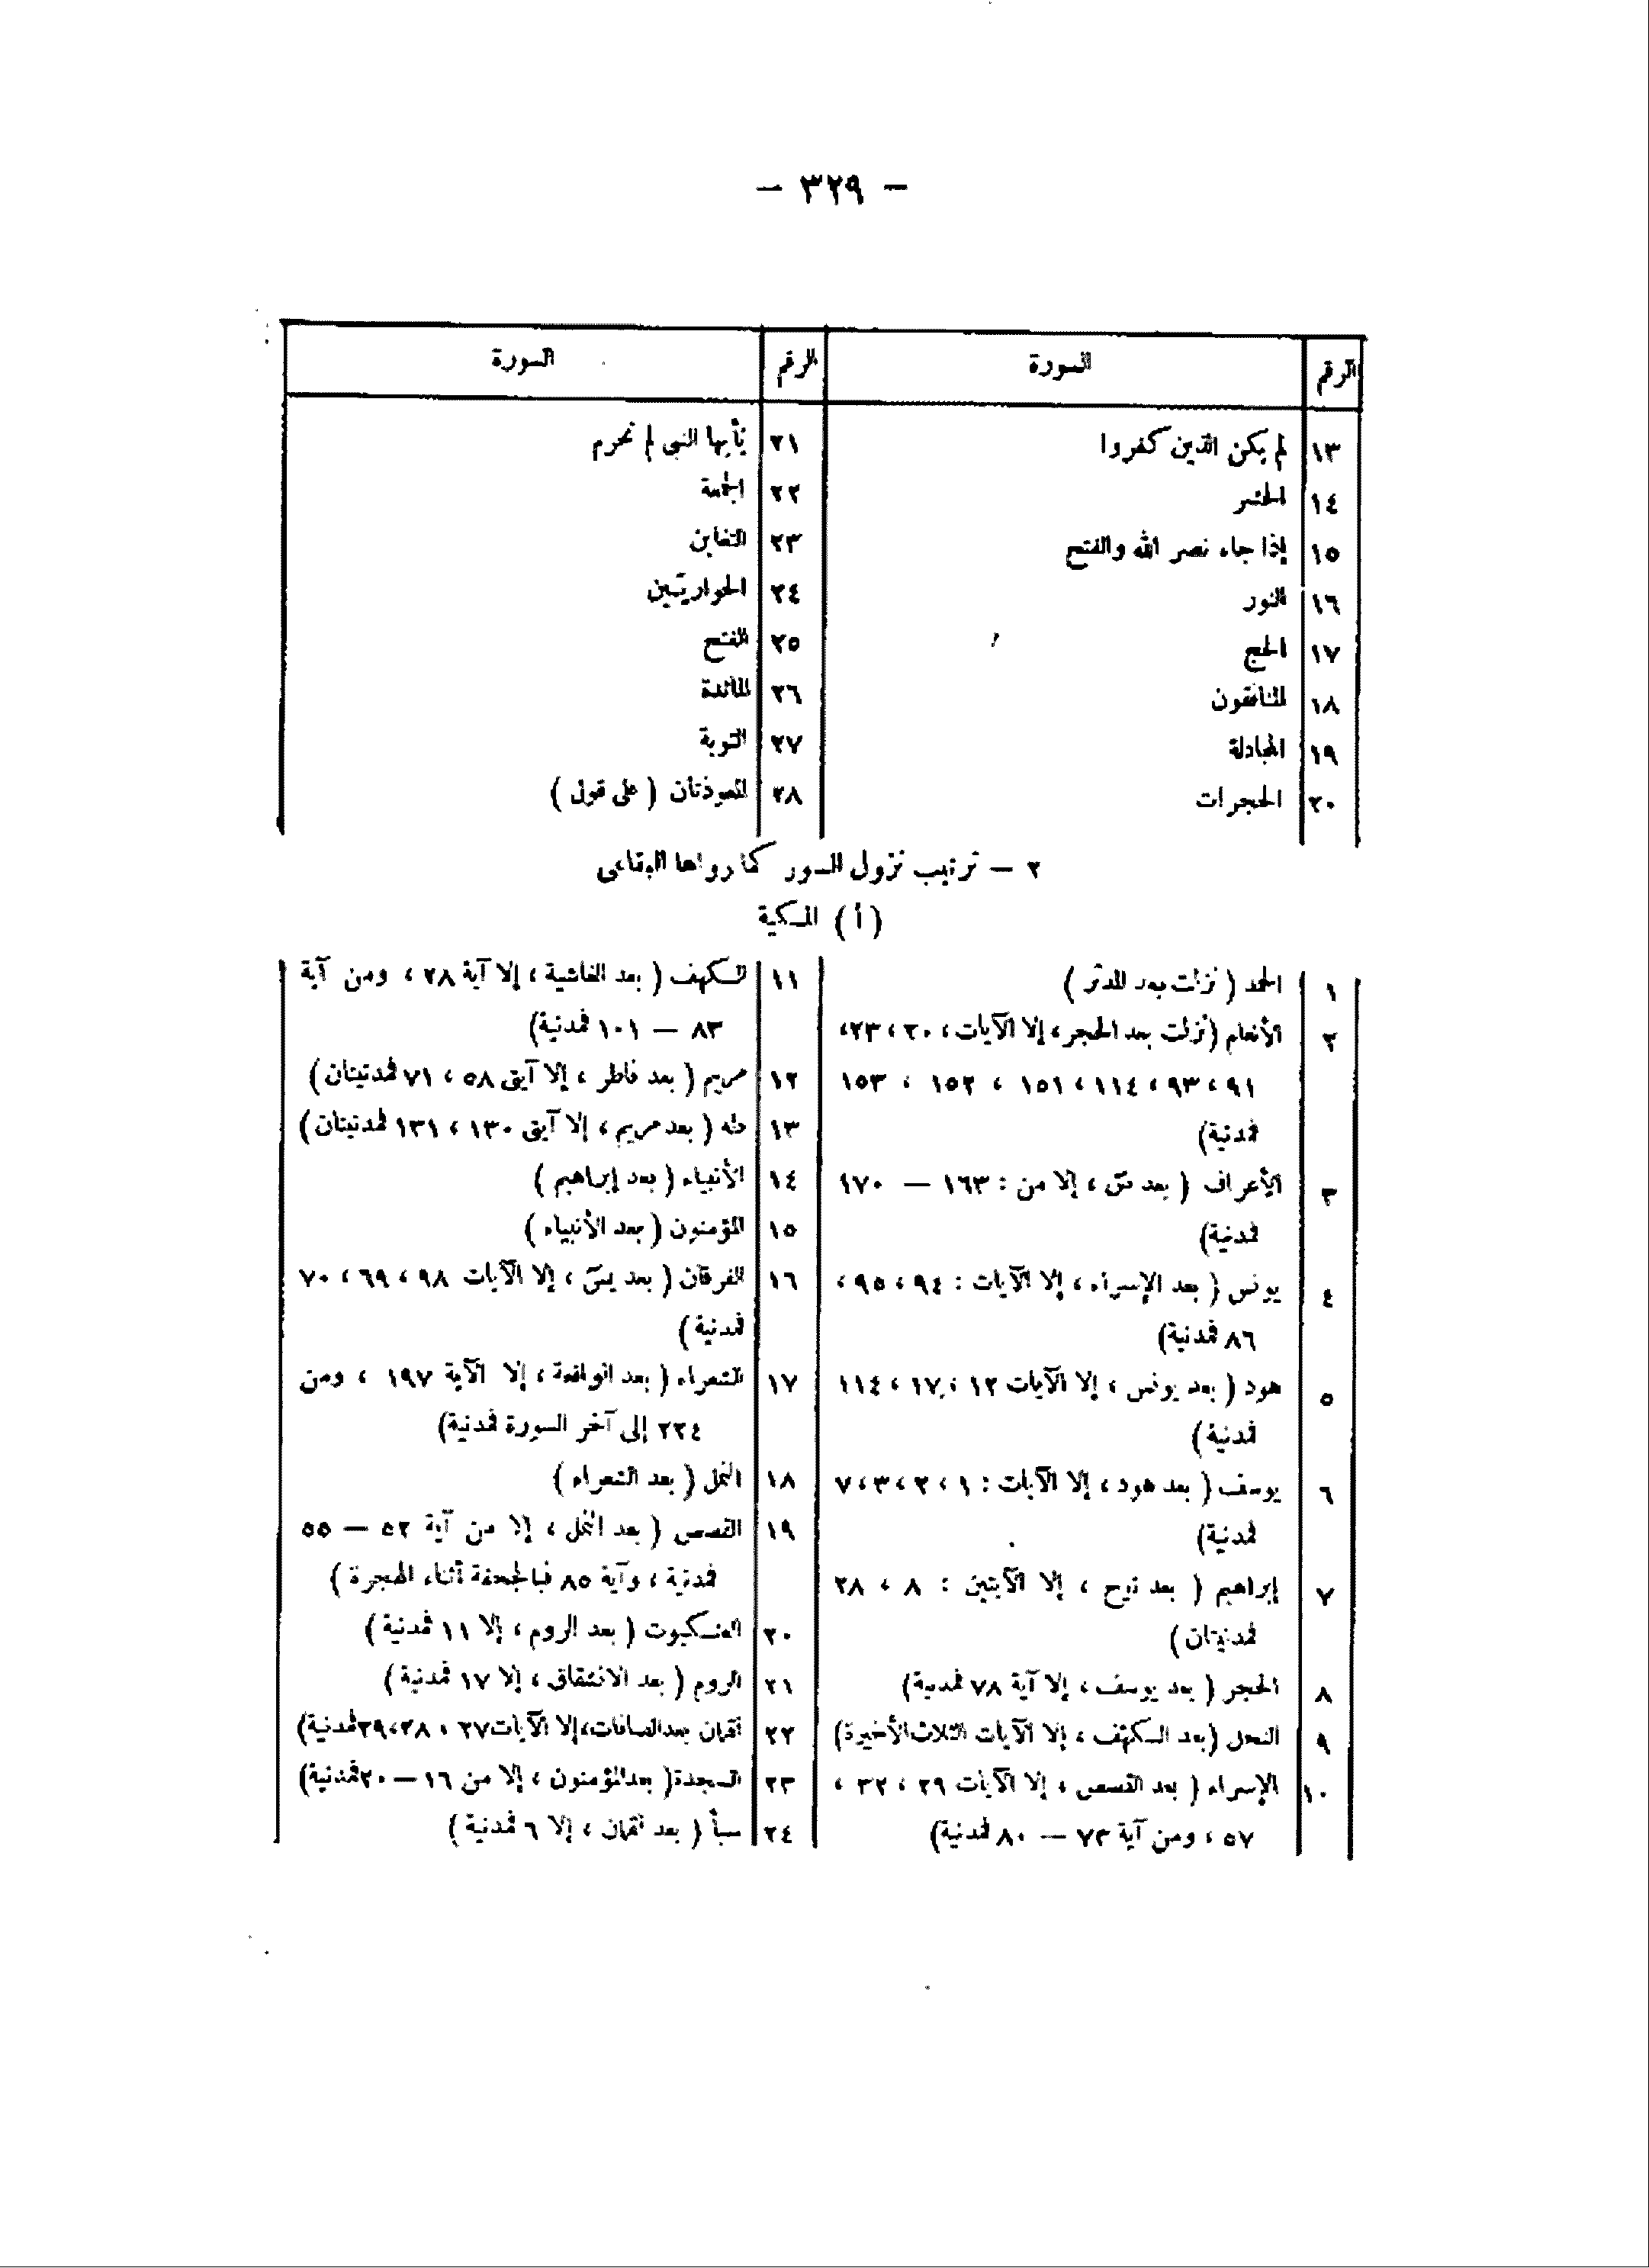 — ٣٢٩ —
الرقم السورة الرقم السورة
١٣ لم يكن الذين كفروا ٢١ يٰأيها النبى لم تحرم
١٤ الحشر ٢٢ الجمعة
١٥ إذا جاء نصر الله والفتح ٢٣ التغابن
١٦ النور ٢٤ الحواريّين
١٧ الحج ٢٥ الفتح
١٨ المنافقون ٢٦ المائدة
١٩ المجادلة ٢٧ التوبة
٢٠ الحجرات ٢٨ المعوذتان ( على قول )
٢ — ترتيب نزول السور كما رواها البقاعى
(أ) المكية
١ الحمد ( نزلت بعد المدثر )
٢ الأنعام (نزلت بعد الحجر، إلا الآيات، ٢٠، ٢٣،
٩١، ٩٣، ١١٤، ١٥١ ، ١٥٢ ، ١٥٣
فمدنية)
٣ الأعراف ( بعد صّ ، إلا من : ١٦٣ — ١٧٠
فمدنية)
٤ يونس ( بعد الإسراء ، إلا الآيات : ٩٤، ٩٥،
٨٦ فمدنية)
٥ هود ( بعد يونس ، إلا الآيات ١٢ ، ١٧ ، ١١٤
فمدنية )
٦ يوسف ( بعد هود ، إلا الآيات : ١ ، ٢ ، ٣ ، ٧
فمدنية)
٧ إبراهيم ( بعد نوح ، إلا الآيتين : ٨ ، ٢٨
فمدنيتان )
٨ الحجر ( بعد يوسف ، إلا آية ٧٨ فمدنية)
٩ النحل (بعد الكهف ، إلا الآيات الثلاث الأخيرة)
١٠ الإسراء ( بعد القصص ، إلا الآيات ٢٩ ، ٣٢ ،
٥٧ ، ومن آية ٧٣ — ٨٠ فمدنية)
١١ الكهف ( بعد الغاشية ، إلا آية ٢٨ ، ومن آية
٨٣ — ١٠١ فمدنية)
١٢ مريم ( بعد فاطر ، إلا آيتى ٥٨ ، ٧١ فمدنيتان )
١٣ طه ( بعد مريم ، إلا آيتى ١٣٠ ، ١٣١ فمدنيتان )
١٤ الأنبياء ( بعد إبراهيم )
١٥ المؤمنون ( بعد الأنبياء )
١٦ الفرقان ( بعد يسّ ، إلا الآيات ٩٨ ، ٦٩ ، ٧٠
فمدنية )
١٧ الشعراء ( بعد الواقعة ، إلا الآية ١٩٧ ، ومن
٢٢٤ إلى آخر السورة فمدنية)
١٨ النمل ( بعد الشعراء )
١٩ القصص ( بعد النمل ، إلا من آية ٥٢ — ٥٥
فمدنية ، وآية ٨٥ فبالجحفة أثناء الهجرة )
٢٠ العنكبوت ( بعد الروم ، إلا ١١ فمدنية )
٢١ الروم ( بعد الانشقاق ، إلا ١٧ فمدنية )
٢٢ لقمان بعد الصافات، إلا الآيات ٢٧ ، ٢٨، ٢٩ فمدنية)
٢٣ السجدة( بعد المؤمنون ، إلا من ١٦ — ٢٠ فمدنية)
٢٤ سبأ ( بعد لقمان ، إلا ٦ فمدنية )